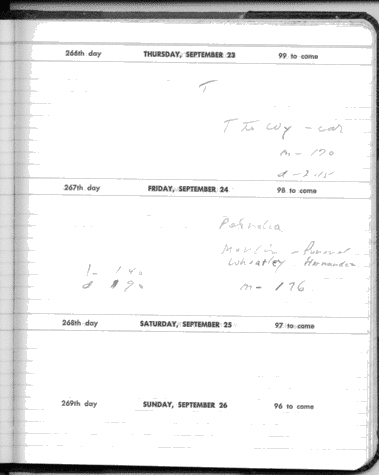 266th day THURSDAY, SEPTEMBER 23 99 to come
T
T to Wy - car
m - 170
d - 2.15
267th day FRIDAY, SEPTEMBER 24 98 to come
- Funeral
Wheatley Hernandez
m - 176
268th day SATURDAY, SEPTEMBER 25 97 to come
269th day SUNDAY, SEPTEMBER 26 96 to come